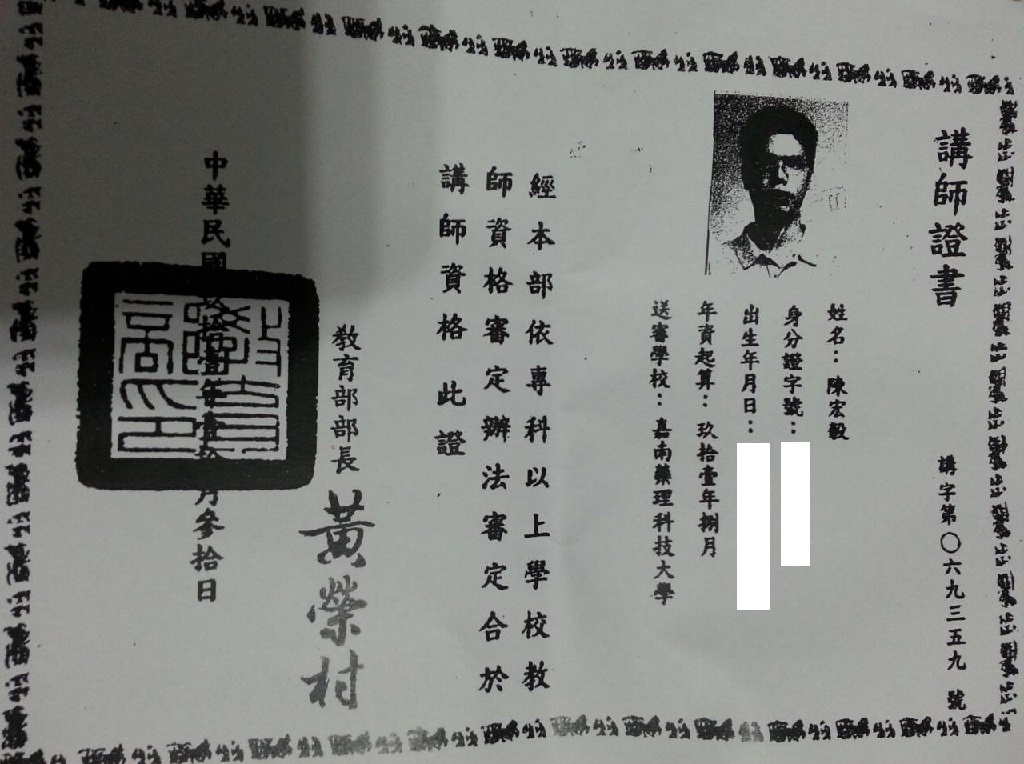 講師證書
講字第〇六九三五九號
姓名：陳宏毅
身分證字號：
出生年月日：
年資起算：玖拾壹年捌月
送審學校：嘉南藥理科技大學
經本部依專科以上學校教
師資格審定辦法審定合於
講師資格此證
教育部部長 黃榮村
中華民國玖拾壹年壹拾月參拾日